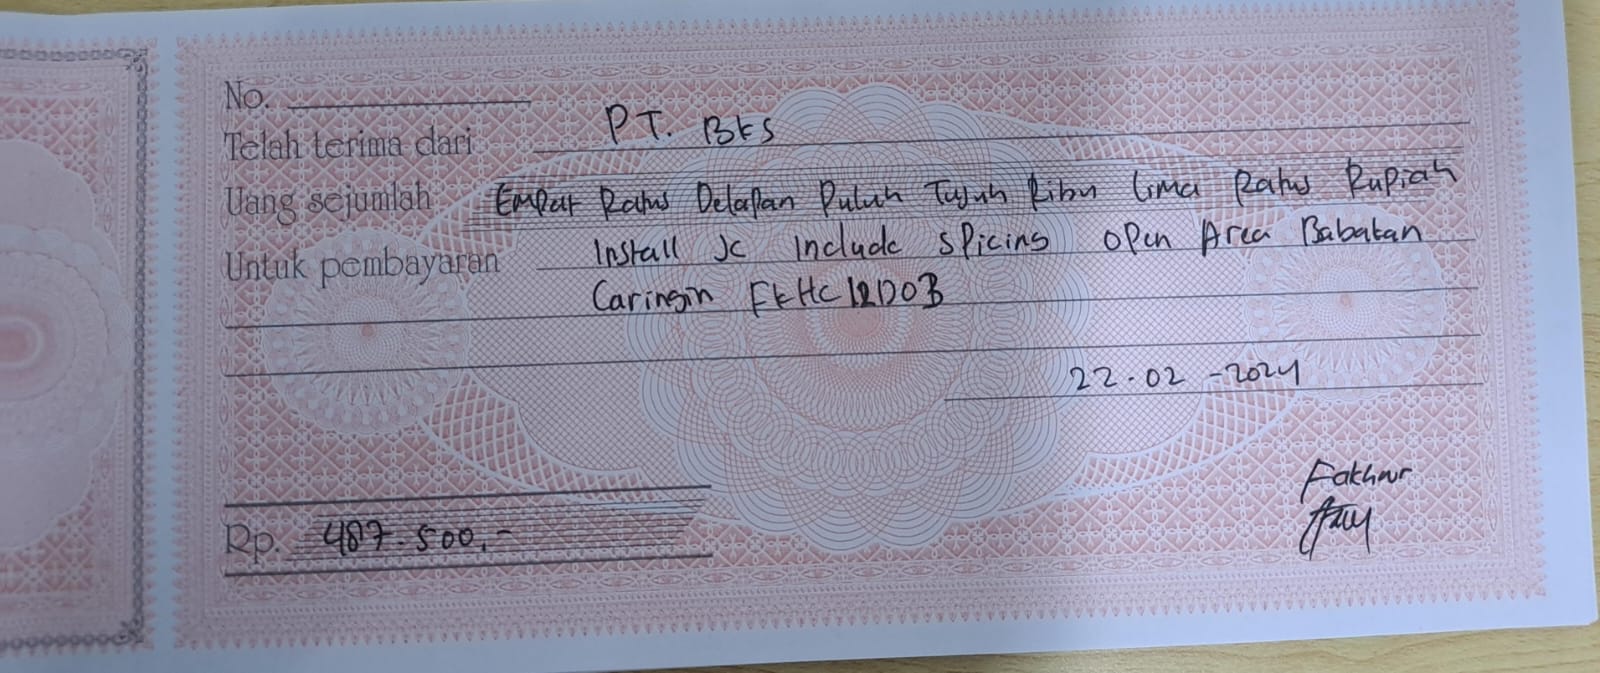 No.
Telah terima dari PT. BKS
Uang sejumlah Empat Ratus Delapan Puluh Tujuh Ribu Lima Ratus Rupiah
Untuk pembayaran Install JC Include Splicing Open Area Babakan
Caringin FKHC12D03
22-02-2024
Fakhrur
Rp. 487.500,-